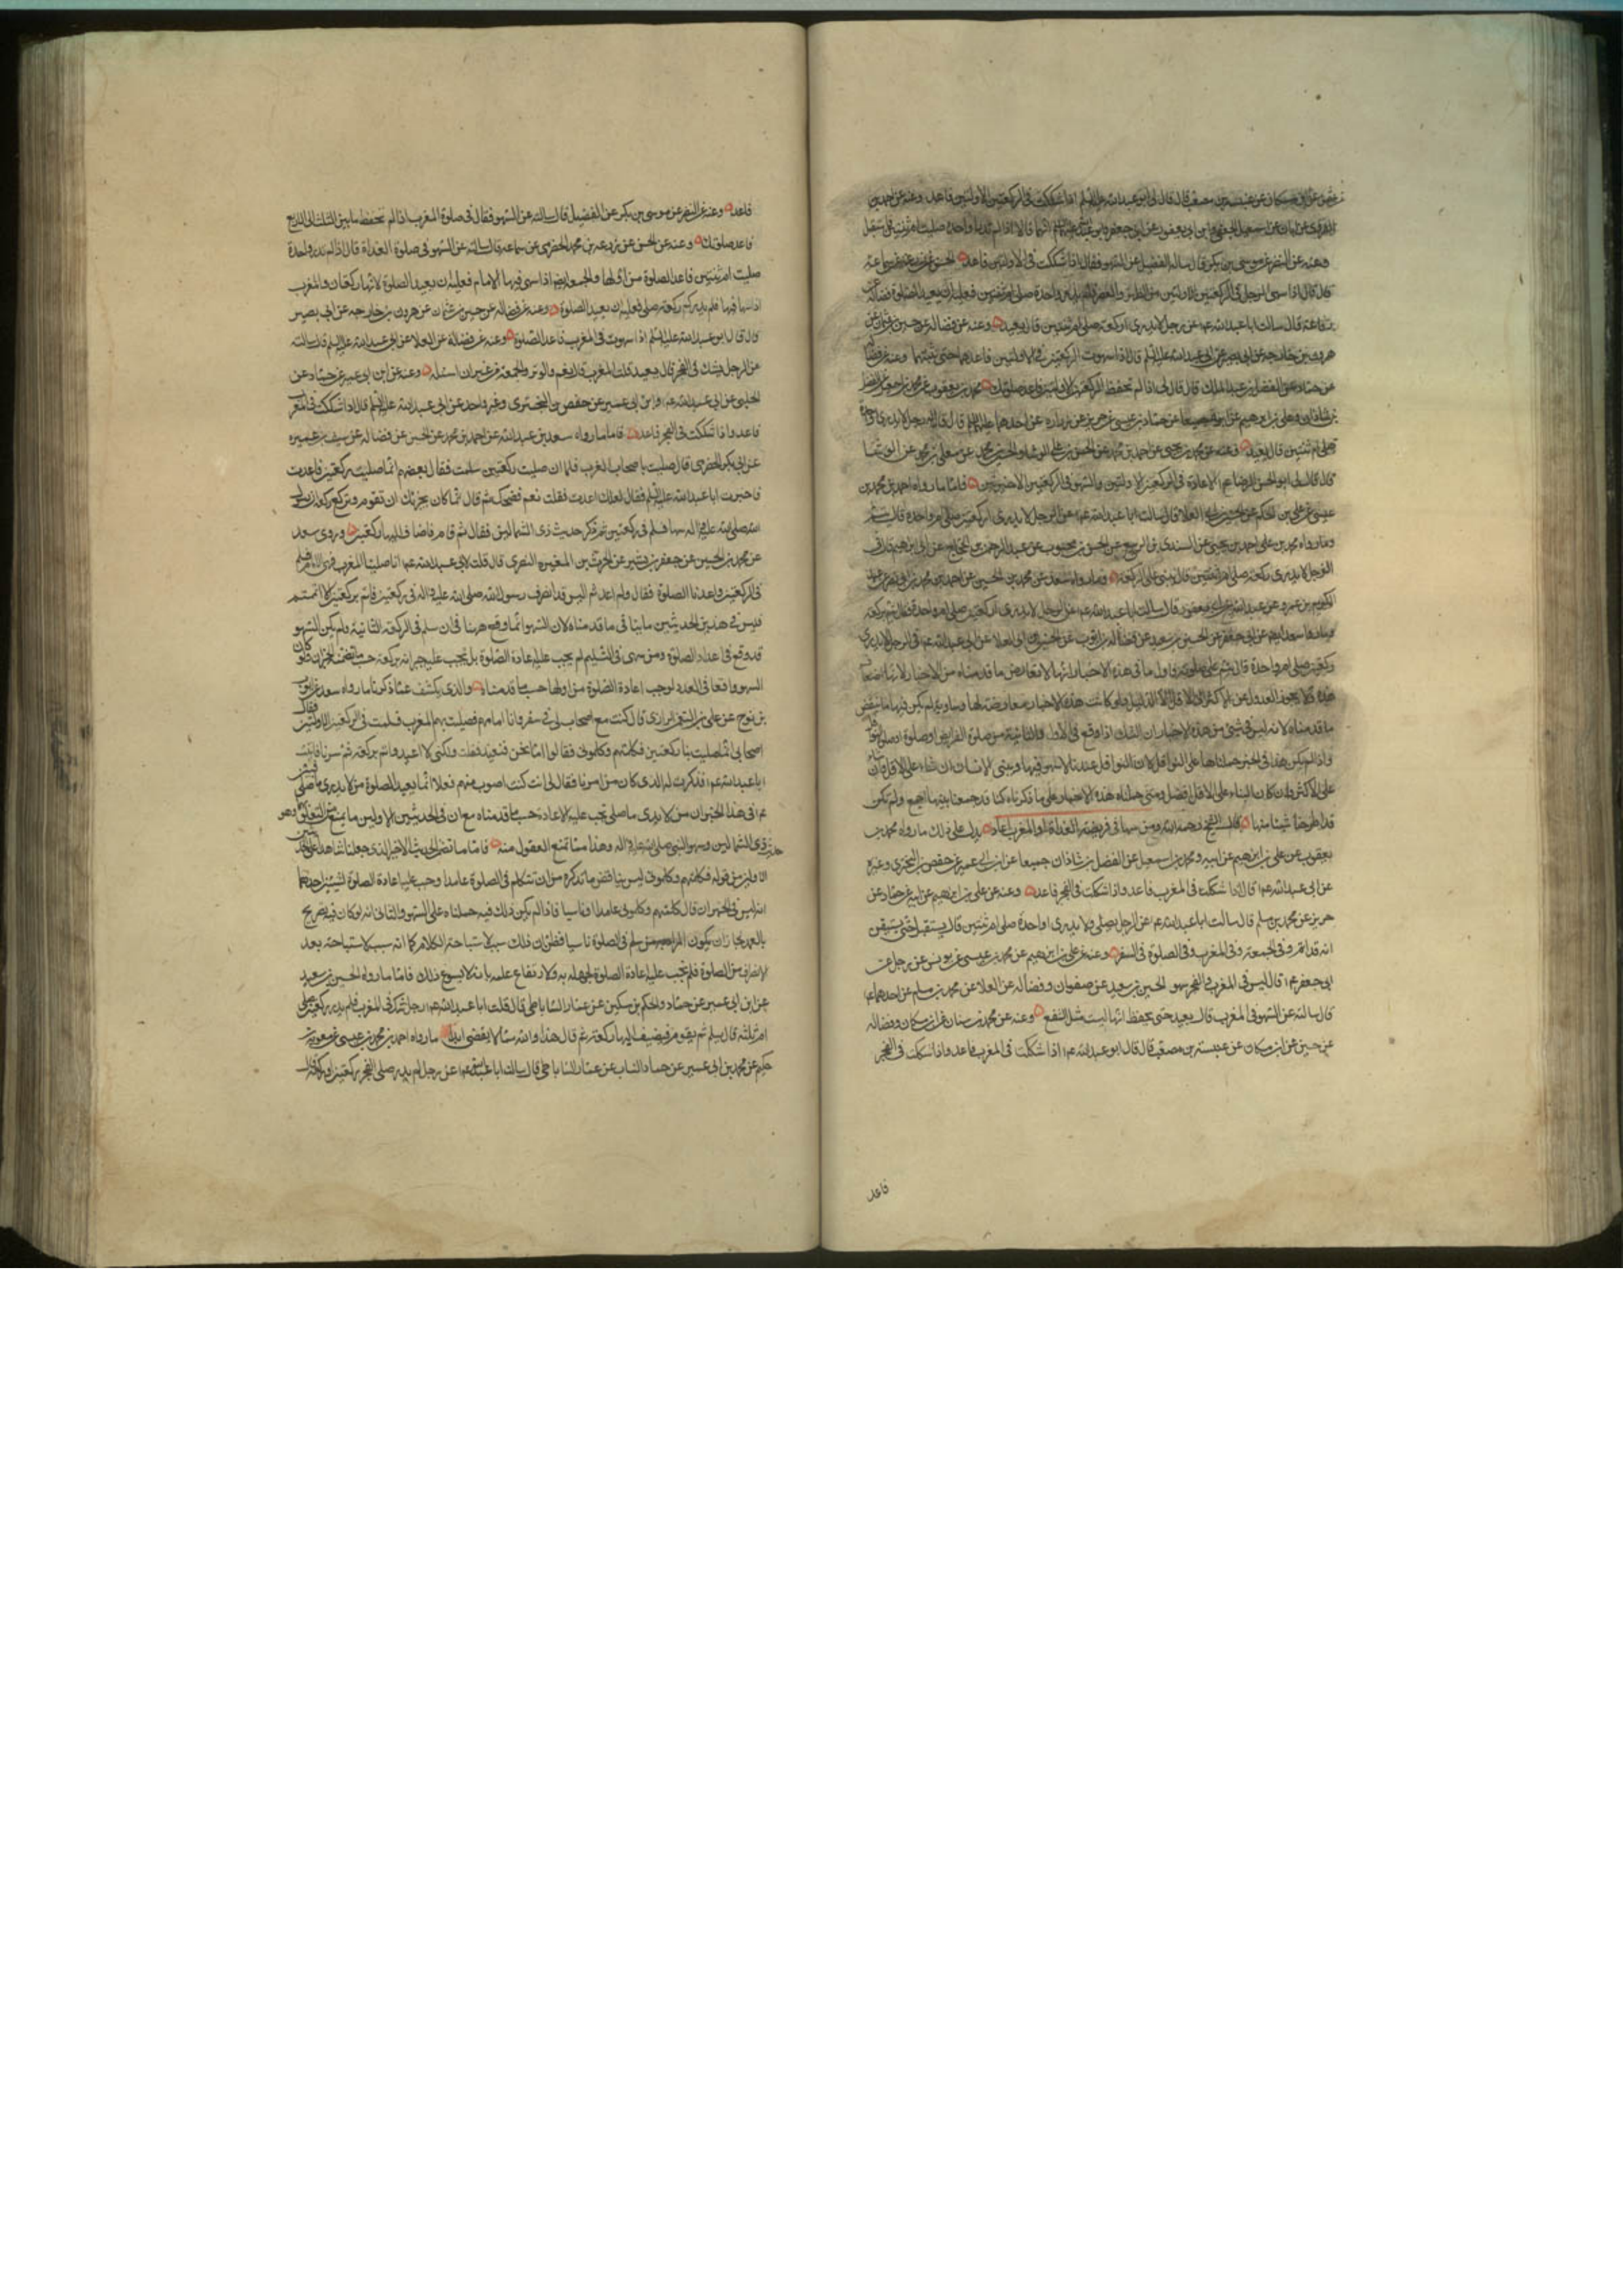 عن عنبسة بن مصعب قال قال لى ابو عبد الله عليه السلم اذا شككت فى الركعتين الاولتين فاعد وعنه عن احمد بن
القروى عن ابان عن اسمعيل الجعفى وابن ابى يعفور عن ابى جعفر وابى عبد الله عليهما السلم انهما قالا اذا لم تدر واحدة صليت ام ثنتين فاستقبل
وعنه عن النضر عن موسى بن بكر قال ساله الفضيل عن السهو فقال اذا شككت فى الاولتين فاعد الحسن عن زرعة عن سماعة
قال قال اذا سهى الرجل فى الركعتين الاولتين من الظهر والعصر فلم يدر واحدة صلى ام ثنتين فعليه ان يعيد الصلوة فضالة عن
رفاعة قال سالت ابا عبد الله ع عن رجل لا يدرى اركعة صلى ام ثنتين قال يعيد وعنه عن فضاله عن حسين بن عثمان عن
هرون بن خارجة عن ابى بصير عن ابى عبد الله عليه السلم قال اذا سهوت فى الركعتين الاولتين فاعدهما حتى تثبتهما وعنه عن فضالة
عن حماد عن الفضل بن عبد الملك قال قال لى اذا لم تحفظ الركعتين الاولتين فاعد صلوتك محمد بن يعقوب عن محمد بن اسمعيل عن الفضل
بن شاذان وعلى بن ابرهيم عن ابيه جميعا عن حماد بن عيسى عن حريز عن زرارة عن احدهما عليهما السلم قال قلت له رجل لا يدرى واحدة
صلى ام ثنتين قال يعيد وعنه عن محمد بن يحيى عن احمد بن محمد عن الحسن بن على الوشاء والحسين بن محمد عن معلى بن محمد عن الوشا
قال قال لى ابو الحسن الرضا ع الاعادة فى الركعتين الاولتين والسهو فى الركعتين الاخيرتين فاما ما رواه احمد بن محمد بن
عيسى عن على بن الحكم عن الحسين بن ابى العلا قال سالت ابا عبد الله ع عن الرجل لا يدرى اركعتين صلى ام واحدة قال يتم
وما رواه محمد بن على بن احمد بن يحيى عن السندى بن الربيع عن الحسن بن محبوب عن عبد الرحمن بن الحجاج عن ابى ابرهيم قال فى
الرجل لا يدرى ركعة صلى ام ثنتين قال يبنى على الركعة وما رواه سعد عن محمد بن الحسين عن احمد بن محمد بن ابى نصر عن عبد
الكريم بن عمرو عن عبد الله بن ابى يعفور قال سالت ابا عبد الله ع عن الرجل لا يدرى اركعتين صلى ام واحدة فقال يتم بركعة
وما رواه سعد ايضا عن ابى جعفر عن الحسين بن سعيد عن فضالة بن ايوب عن الحسين بن ابى العلا عن ابى عبد الله ع فى الرجل لا يدرى
ركعتين صلى ام واحدة قال يتم على صلوته فاول ما فى هذه الاخبار انها لا تعارض ما قدمناه من الاخبار لانها اضعاف
هذه ولا يجوز العدول عن الاكثر الى الاقل الا لدليل ولو كانت هذه الاخبار معارضة لها ومساوية لم يكن فيها ما ينقض
ما قدمناه لانه ليس فى شئ من هذه الاخبار ان الشك اذا وقع فى الاولى والثانية من صلوة الفرايض او صلوة النوافل
واذا لم يكن هذا فى الخبر حملناها على النوافل لان النوافل عندنا لا سهو فيها ويبنى الانسان ان شاء على الاقل وان شاء
على الاكثر وان كان البناء على الاقل افضل ومتى حملنا هذه الاخبار على ما ذكرناه كنا قد جمعنا بينها اجمع ولم نكن
قد اطرحنا شيئا منها قال الشيخ رحمه الله ومن سها فى فريضة الغداة او المغرب اعاد يدل على ذلك ما رواه محمد بن
يعقوب عن على بن ابرهيم عن ابيه ومحمد بن اسمعيل عن الفضل بن شاذان جميعا عن ابن ابى عمير عن حفص بن البخترى وغيره
عن ابى عبد الله ع قال اذا شككت فى المغرب فاعد واذا شككت فى الفجر فاعد وعنه عن على بن ابرهيم عن ابيه عن حماد عن
حريز عن محمد بن مسلم قال سالت ابا عبد الله ع عن الرجل يصلى ولا يدرى اواحدة صلى ام ثنتين قال يستقبل حتى يستيقن
انه قد اتم وفى الجمعة وفى المغرب وفى الصلوة فى السفر وعنه عن على بن ابرهيم عن محمد بن عيسى عن يونس عن رجل عن
ابى جعفر ع قال ليس فى المغرب والفجر سهو الحسين بن سعيد عن صفوان وفضاله عن العلا عن محمد بن مسلم عن احدهما ع
قال سالته عن السهو فى المغرب قال يعيد حتى يحفظ انها ليست مثل الشفع وعنه عن محمد بن سنان عن ابن مسكان وفضاله
عن حسين عن ابن مسكان عن عنبسة بن مصعب قال قال ابو عبد الله ع اذا شككت فى المغرب فاعد واذا شككت فى الفجر
فاعد
فاعد وعنه عن النضر عن موسى بن بكر عن الفضيل قال سالته عن السهو فقال فى صلوة المغرب اذا لم تحفظ ما بين الثلث الى الاربع
فاعد صلوتك وعنه عن الحسن عن زرعة بن محمد الحضرمى عن سماعه قال سالته عن السهو فى صلوة الغداة قال اذا لم تدر واحدة
صليت ام ثنتين فاعد الصلوة من اولها والجمعة ايضا اذا سهى فيها الامام فعليه ان يعيد الصلوة لانها ركعتان والمغرب
اذا سها فيها فلم يدر كم ركعة صلى فعليه ان يعيد الصلوة وعنه عن فضاله عن حسين بن عثمان عن هرون بن خارجه عن ابى بصير
قال قال ابو عبد الله عليه السلم اذا سهوت فى المغرب فاعد الصلوة وعنه عن فضالة عن العلا عن ابى عبد الله عليه السلم قال سالته
عن الرجل يشك فى الفجر قال يعيد قلت المغرب قال نعم والوتر والجمعة من غير ان اساله وعنه عن ابن ابى عمير عن حماد عن
الحلبى عن ابى عبد الله ع وابن ابى عمير عن حفص بن البخترى وغير واحد عن ابى عبد الله عليه السلم قال اذا شككت فى المغرب
فاعد واذا شككت فى الفجر فاعد فاما ما رواه سعد بن عبد الله عن احمد بن محمد عن الحسين عن فضاله عن سيف بن عميرة
عن ابى بكر الحضرمى قال صليت باصحابى المغرب فلما ان صليت ركعتين سلمت فقال بعضهم انما صليت ركعتين فاعدت
فاخبرت ابا عبد الله عليه السلم فقال لعلك اعدت فقلت نعم فضحك ثم قال انما كان يجزيك ان تقوم وتركع ركعة ان رسول
الله صلى الله عليه واله سها فسلم فى ركعتين ثم ذكر حديث ذى الشمالين فقال ثم قام فاضاف اليها ركعتين وروى سعد
عن محمد بن الحسين عن جعفر بن بشير عن الحرث بن المغيره النصرى قال قلت لابى عبد الله ع انا صلينا المغرب فسهى الامام فسلم
فى الركعتين فاعدنا الصلوة فقال ولم اعدتم اليس قد انصرف رسول الله صلى الله عليه واله فى ركعتين فاتم بركعتين الا اتممتم
فليس فى هذين الحديثين ما ينافى ما قدمناه لان السهو انما وقع ههنا فى ان سلم فى الركعة الثانية ولم يكن السهو
قد وقع فى اعداد الصلوة ومن سهى فى التسليم لم يجب عليه اعادة الصلوة بل يجب عليه جبرانه بركعة حسب ما تضمنه الخبران ولو كان
السهو واقعا فى العدد لوجب اعادة الصلوة من اولها حسب ما قدمناه والذى يكشف عما ذكرناه ما رواه سعد عن ايوب
بن نوح عن على بن النعمان الرازى قال كنت مع اصحاب لى فى سفر وانا امامهم فصليت بهم المغرب فسلمت فى الركعتين الاولتين فقال
اصحابى انما صليت بنا ركعتين فكلمتهم وكلمونى فقالوا اما نحن فنعيد فقلت ولكنى لا اعيد واتم بركعة ثم سرنا فاتيت
ابا عبد الله ع فذكرت له الذى كان من امرنا فقال لى انت كنت اصوب منهم فعلا انما يعيد الصلوة من لا يدرى ما صلى فبين
ع فى هذا الخبر ان من لا يدرى ما صلى يجب عليه الاعادة حسب ما قدمناه مع ان فى الحديثين الاولين ما يمنع من التعلق بهما وهو
حديث ذى الشمالين وسهو النبى صلى الله عليه واله وهذا مما تمنع العقول منه فاما ما تضمن الحديث الاخير الذى جعلناه شاهدا على الحديثين
الاولين من قوله فكلمتهم وكلمونى ليس ينافض ما نذكره من ان من تكلم فى الصلوة عامدا وجب عليه اعادة الصلوة لشيئين احدهما
انه ليس فى الخبر انه قال كلمتهم وكلمونى عامدا او ناسيا فاذا لم يكن ذلك فيه حملناه على السهو والثانى انه لو كان فيه تصريح
بالعمد لجاز ان يكون سلم فى الصلوة ناسيا فظن ان ذلك سبب لاستباحة الكلام كما انه سبب لاستباحته بعد
الانصراف من الصلوة فلم تجب عليه اعادة الصلوة لجهله به ولارتفاع علمه بانه لا يسوغ ذلك فاما ما رواه الحسين بن سعيد
عن ابن ابى عمير عن حماد والحكم بن مسكين عن عمار الساباطى قال قلت لابى عبد الله ع رجل شك فى المغرب فلم يدر ركعتين صلى
ام ثلثة قال يسلم ثم يقوم فيضيف اليها ركعة ثم قال هذا والله مما لا يقضى ابدا ما رواه احمد بن محمد بن عيسى عن معوية بن
حكيم عن محمد بن ابى عمير عن حماد الناب عن عمار الساباطى قال سالت ابا عبد الله ع عن رجل لم يدر صلى الفجر ركعتين او ركعة